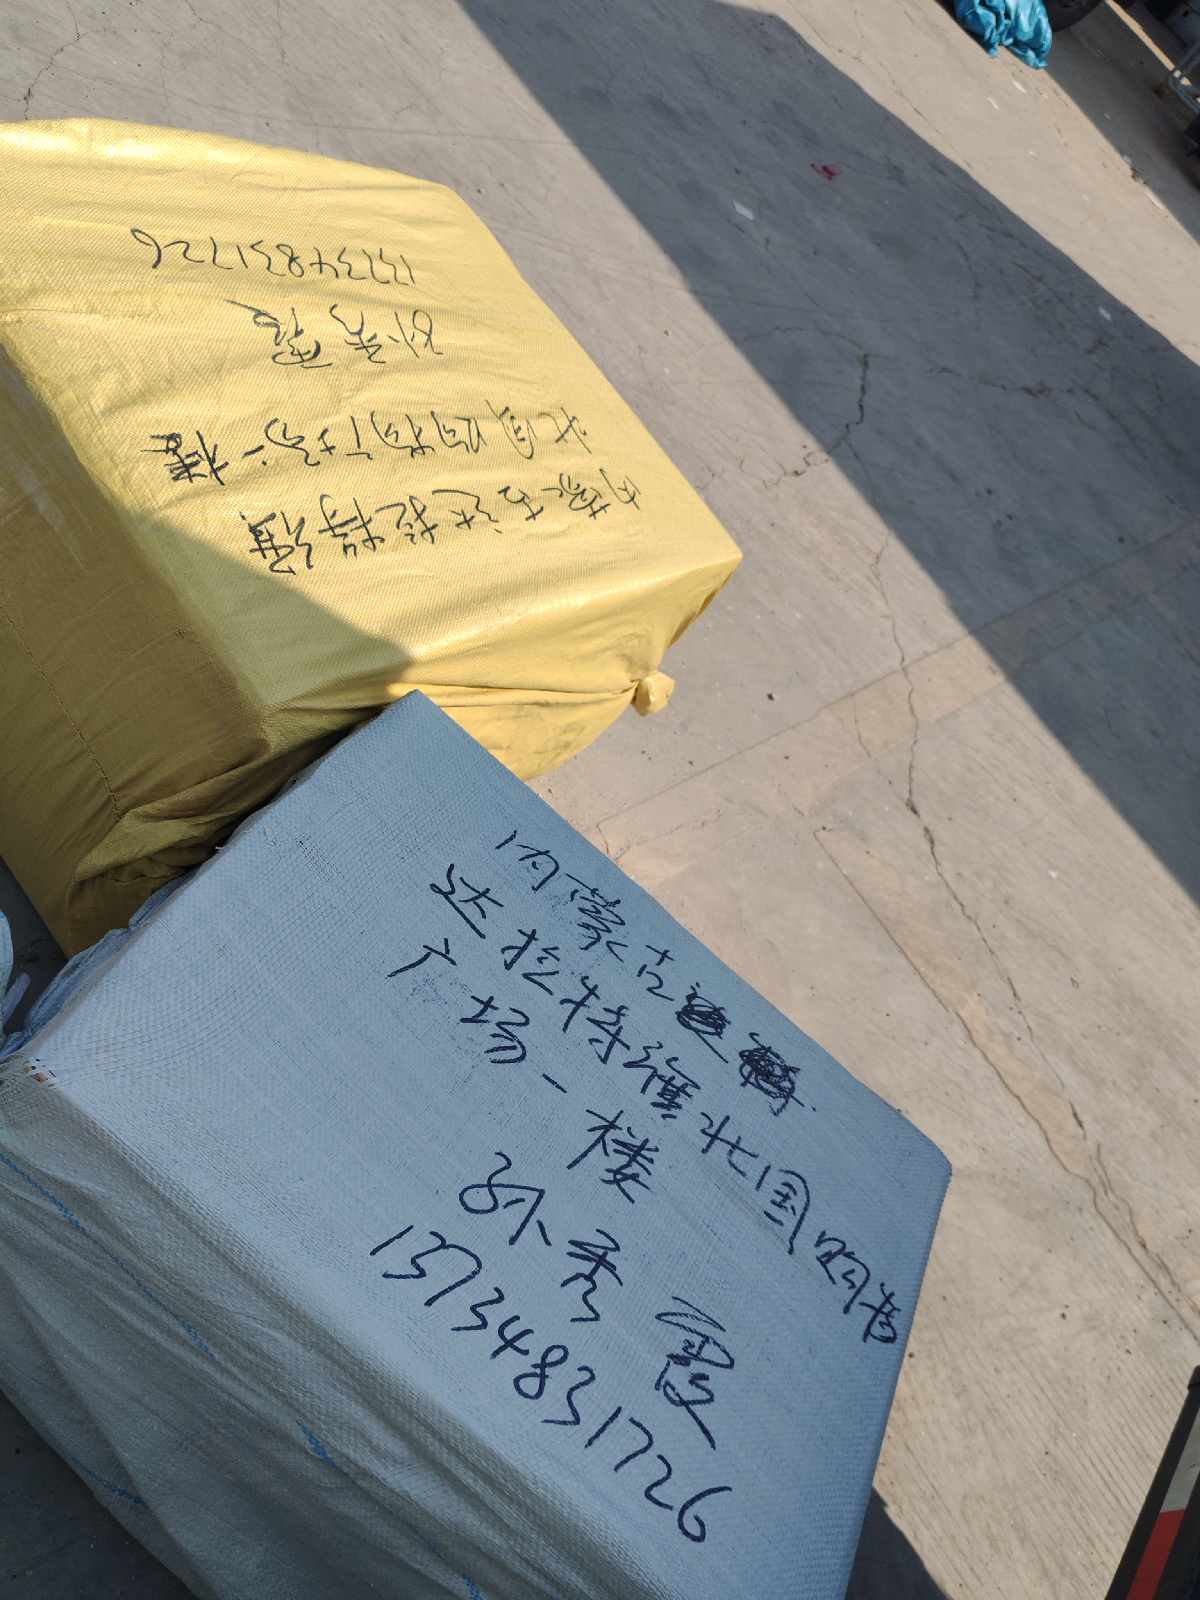 内蒙古达拉特旗
北国购物广场一楼
孙秀霞
13734831726
内蒙古
达拉特旗北国购物
广场一楼
孙秀霞
13734831726